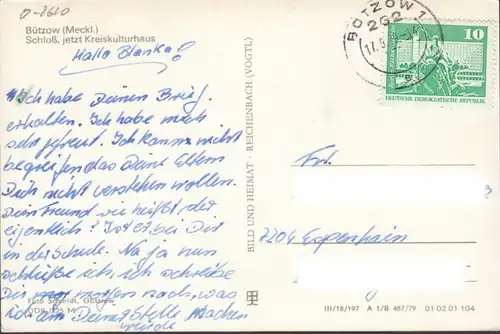 0-2620
Bützow (Meckl.)
Schloß, jetzt Kreiskulturhaus
Hallo Blanka!
Ich habe Deinen Brief
erhalten. Ich habe mich
sehr gefreut. Ich kann nicht
begreifen das Deine Eltern
Dich nicht verstehen wollen.
Dein Freund wie heißt der
eigentlich? Ist er bei Dir
in der Schule. Na ja nun
schließe ich, ich schreibe
Dir morgen noch, was
ich an Deiner Stelle machen
würde
Foto Schmidt, Güstrow
BILD UND HEIMAT · REICHENBACH (VOGTL)
BÜTZOW 1
262
10
DEUTSCHE DEMOKRATISCHE REPUBLIK
Frl.
7204 Espenhain
III/18/197 A 1/B 487/79 01 02 01 104